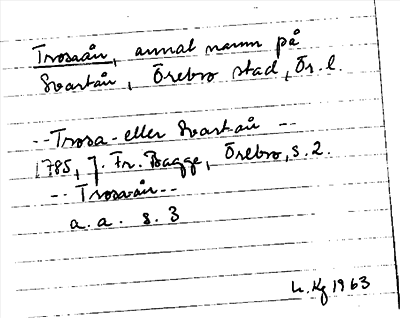 Trosaån, annat namn på
Svartån, Örebro stad, Ör. l.
-- Trosa- eller Svart-ån --
1785, J. Fr. Bagge, Örebro, s. 2.
-- Trosaån --
a. a. s. 3
L. Kg 1963